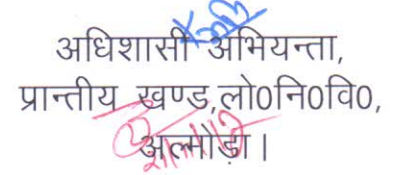 अधिशासी अभियन्ता,
प्रान्तीय खण्ड,लो0नि0वि0,
अल्मोड़ा।